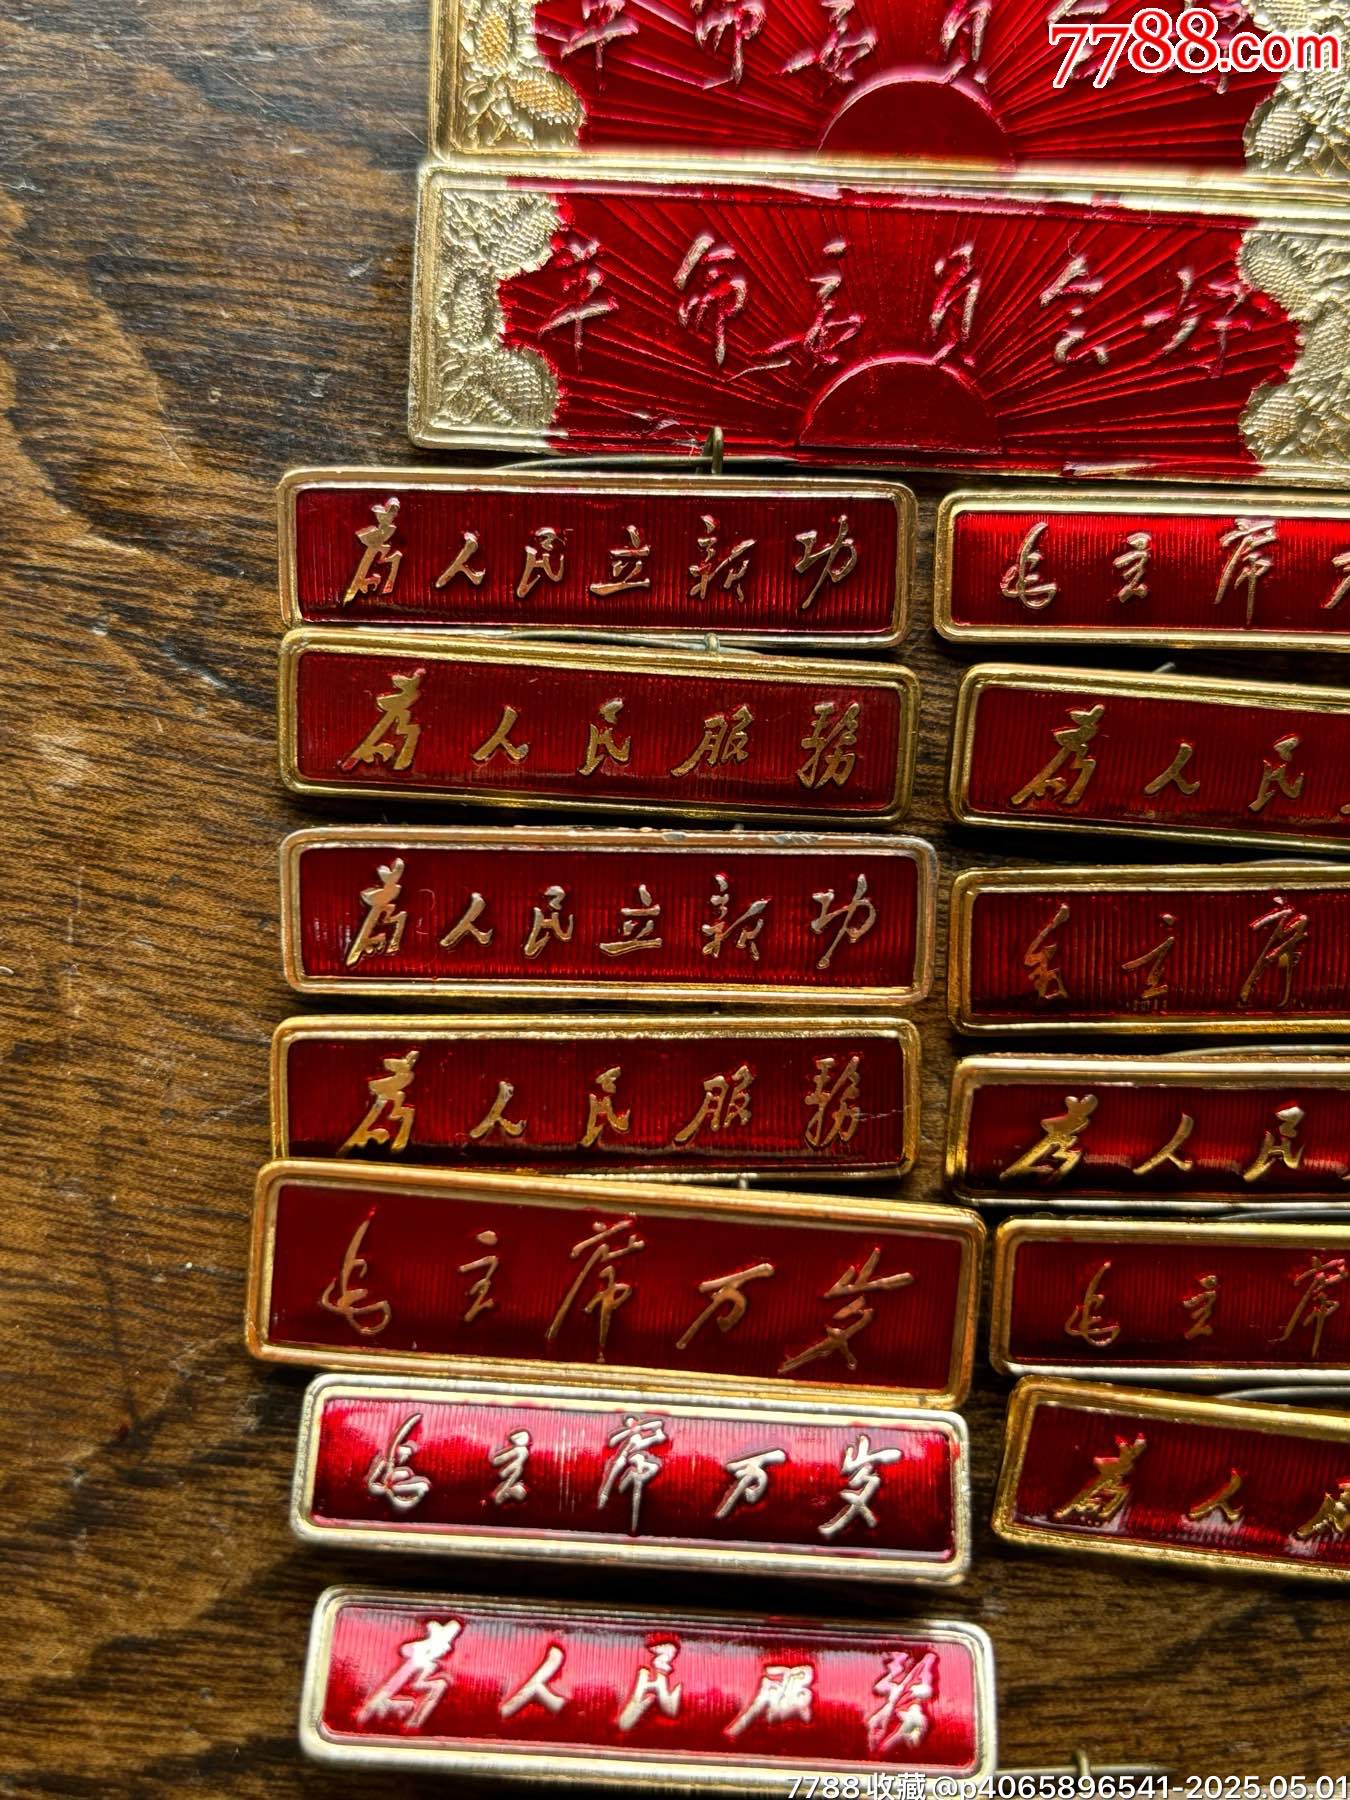 7788.com
革命委员会好
革命委员会好
為人民立新功
毛主席万
為人民服務
為人民
為人民立新功
毛主席
為人民服務
為人民
毛主席万岁
毛主席
毛主席万岁
為人民
為人民服務
7788收藏@p4065896541-2025.05.01